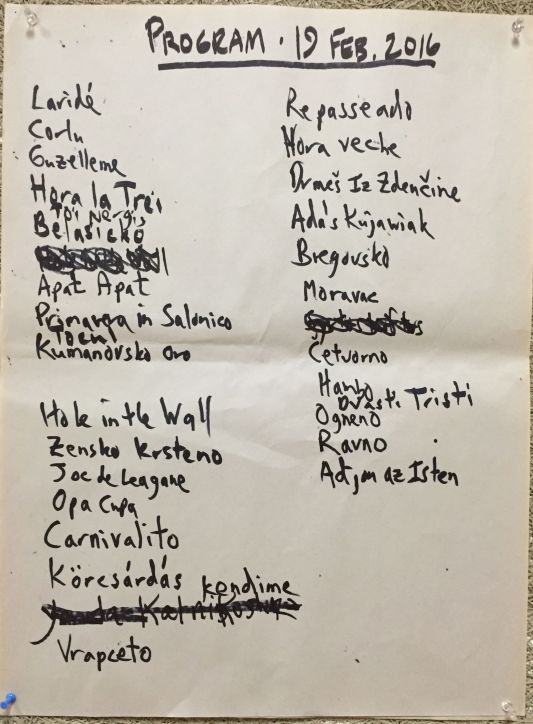 PROGRAM · 19 FEB. 2016
Laridé
Corlu
Guzelleme
Hora la Trei
Toi Nergis
Belasicko
Apat Apat
Primavera in Salonico
Kumanovsko Oro
Hole in the Wall
Zensko Krsteno
Joc de Leagane
Opa Cupa
Carnivalito
Körcsárdás
kendime
Vrapceto
Repasseado
Hora veche
Drmeš Iz Zdenčine
Ada's Kujawiak
Bregovsko
Moravac
Cetvorno
Hanko
Dvasti Tristi
Ogneno
Ravno
Adjon az Isten